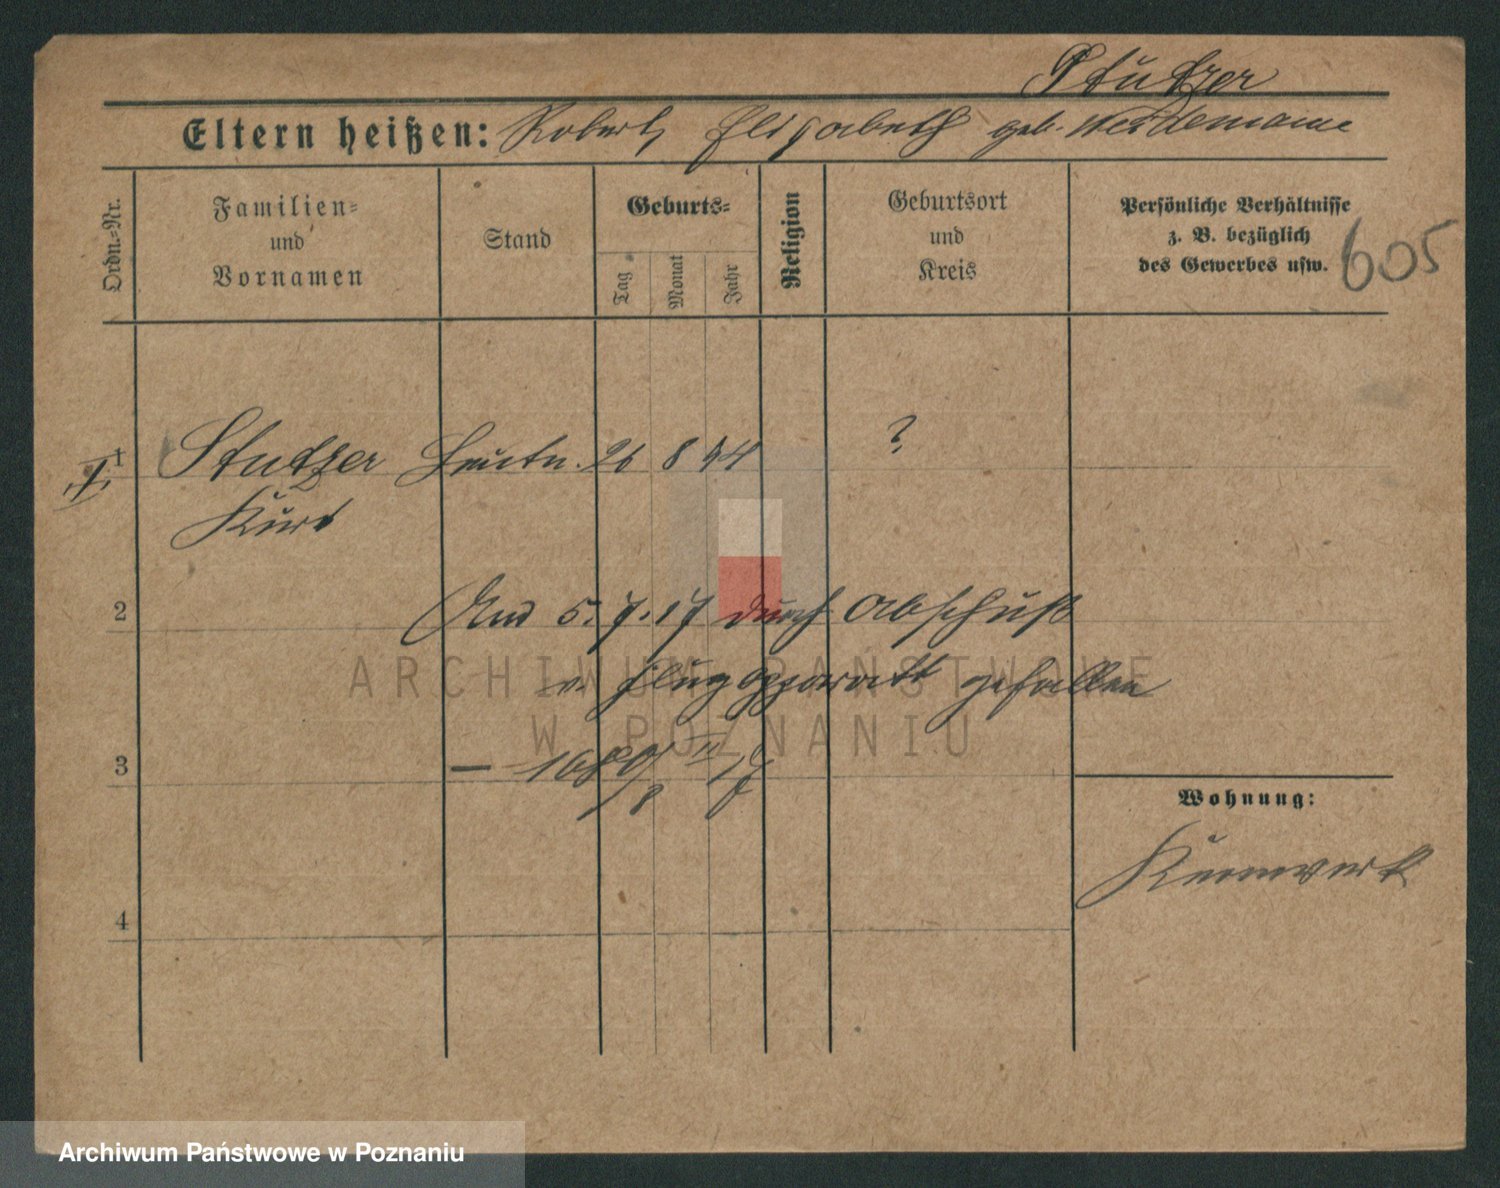 Stutzer
Eltern heißen: Robert, Elisabeth geb.
Ordn.=Nr.
Familien=
und
Vornamen
Stand
Geburts=
Tag
Monat
Jahr
Religion
Geburtsort
und
Kreis
Persönliche Verhältnisse
z. B. bezüglich
des Gewerbes usw.
605
1 Stutzer Leutn. 26 8 94 ?
Kurt
2 Am 5.7.17 durch Abschuß
v. Flugapparatt gefallen
3 — 1680/ II 17
8
Wohnung:
Kernwerk
4
ARCHIWUM PAŃSTWOWE
W POZNANIU
Archiwum Państwowe w Poznaniu